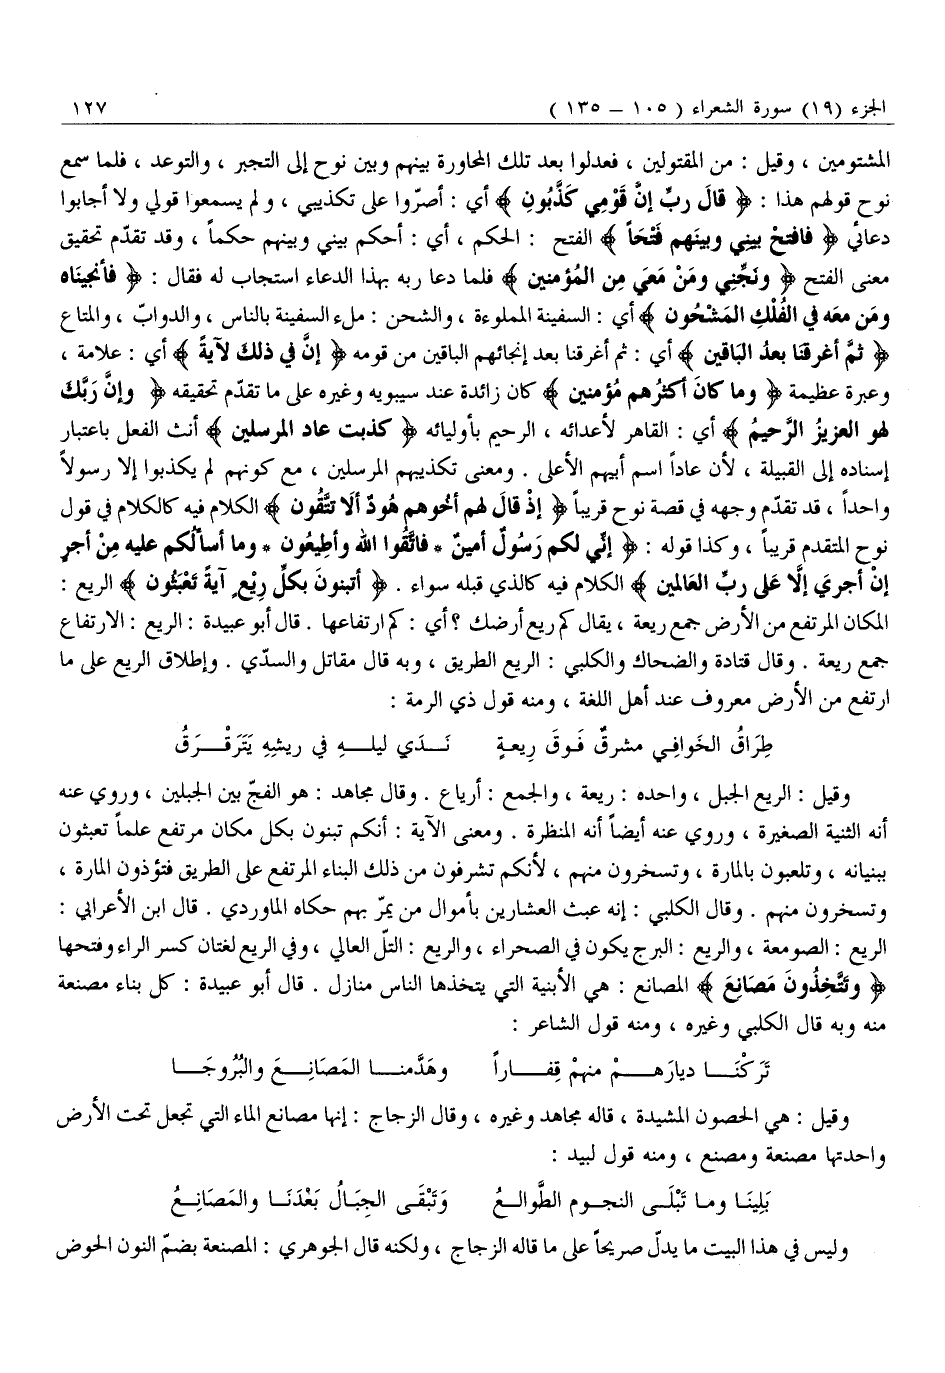 الجزء (١٩) سورة الشعراء ( ١٠٥ – ١٣٥ ) ١٢٧
المشتومين ، وقيل : من المقتولين ، فعدلوا بعد تلك المحاورة بينهم وبين نوح إلى التجبر ، والتوعد ، فلما سمع
نوح قولهم هذا : ﴿ قالَ ربِّ إنَّ قَوْمِي كَذَّبُونِ ﴾ أي : أصرّوا على تكذيبي ، ولم يسمعوا قولي ولا أجابوا
دعائي ﴿ فافتحْ بيني وبينَهم فَتْحَاً ﴾ الفتح : الحكم ، أي : أحكم بيني وبينهم حكماً ، وقد تقدّم تحقيق
معنى الفتح ﴿ ونَجِّنِي ومَنْ مَعَي مِن المُؤمنين ﴾ فلما دعا ربه بهذا الدعاء استجاب له فقال : ﴿ فأنجيناه
ومَن معَه في الفُلْكِ المَشْحُون ﴾ أي : السفينة المملوءة ، والشحن : ملء السفينة بالناس ، والدوابّ ، والمتاع
﴿ ثمَّ أغرقنَا بعدُ البَاقين ﴾ أي : ثم أغرقنا بعد إنجائهم الباقين من قومه ﴿ إنَّ في ذلكَ لآيةً ﴾ أي : علامة ،
وعبرة عظيمة ﴿ وما كانَ أكثرُهم مُؤمنين ﴾ كان زائدة عند سيبويه وغيره على ما تقدّم تحقيقه ﴿ وإنَّ رَبَّكَ
لهو العزيزُ الرَّحيمُ ﴾ أي : القاهر لأعدائه ، الرحيم بأوليائه ﴿ كذبت عاد المرسلين ﴾ أنث الفعل باعتبار
إسناده إلى القبيلة ، لأن عاداً اسم أبيهم الأعلى . ومعنى تكذيبهم المرسلين ، مع كونهم لم يكذبوا إلا رسولاً
واحداً ، قد تقدّم وجهه في قصة نوح قريباً ﴿ إذْ قالَ لهم أخُوهم هُودٌ ألَا تتَّقُون ﴾ الكلام فيه كالكلام في قول
نوح المتقدم قريباً ، وكذا قوله : ﴿ إنِّي لكم رَسُولٌ أمينٌ * فاتَّقُوا الله وأطيعُون * وما أسألُكم عليه مِنْ أجرٍ
إنْ أجريَ إلَّا عَلى ربِّ العَالمين ﴾ الكلام فيه كالذي قبله سواء . ﴿ أتبنونَ بكلِّ رِيْعٍ آيةً تَعْبَثُون ﴾ الريع :
المكان المرتفع من الأرض جمع ريعة ، يقال كم ريع أرضك ؟ أي : كم ارتفاعها . قال أبو عبيدة : الريع : الارتفاع
جمع ريعة . وقال قتادة والضحاك والكلبي : الريع الطريق ، وبه قال مقاتل والسدّي . وإطلاق الريع على ما
ارتفع من الأرض معروف عند أهل اللغة ، ومنه قول ذي الرمة :
طِرَاقُ الخَوافِي مشرقٌ فَوقَ رِيعةٍ نَدَي ليلهِ في ريشِهِ يَتَرَقْرَقُ
وقيل : الريع الجبل ، واحده : ريعة ، والجمع : أرياع . وقال مجاهد : هو الفجّ بين الجبلين ، وروي عنه
أنه الثنية الصغيرة ، وروي عنه أيضاً أنه المنظرة . ومعنى الآية : أنكم تبنون بكل مكان مرتفع علماً تعبثون
ببنيانه ، وتلعبون بالمارة ، وتسخرون منهم ، لأنكم تشرفون من ذلك البناء المرتفع على الطريق فتؤذون المارة ،
وتسخرون منهم . وقال الكلبي : إنه عبث العشارين بأموال من يمرّ بهم حكاه الماوردي . قال ابن الأعرابي :
الريع : الصومعة ، والريع : البرج يكون في الصحراء ، والريع : التلّ العالي ، وفي الريع لغتان كسر الراء وفتحها
﴿ وتَتَّخِذُونَ مَصَانِعَ ﴾ المصانع : هي الأبنية التي يتخذها الناس منازل . قال أبو عبيدة : كل بناء مصنعة
منه وبه قال الكلبي وغيره ، ومنه قول الشاعر :
تَرَكْنَا ديارَهمْ منهمْ قِفاراً وهَدَّمنا المَصَانِعَ والبُرُوجَا
وقيل : هي الحصون المشيدة ، قاله مجاهد وغيره ، وقال الزجاج : إنها مصانع الماء التي تجعل تحت الأرض
واحدتها مصنعة ومصنع ، ومنه قول لبيد :
بَلِينَا وما تَبْلَى النجوم الطَّوالعُ وَتَبْقَى الجِبَالُ بَعْدَنَا والمَصَانِعُ
وليس في هذا البيت ما يدلّ صريحاً على ما قاله الزجاج ، ولكنه قال الجوهري : المصنعة بضمّ النون الحوض